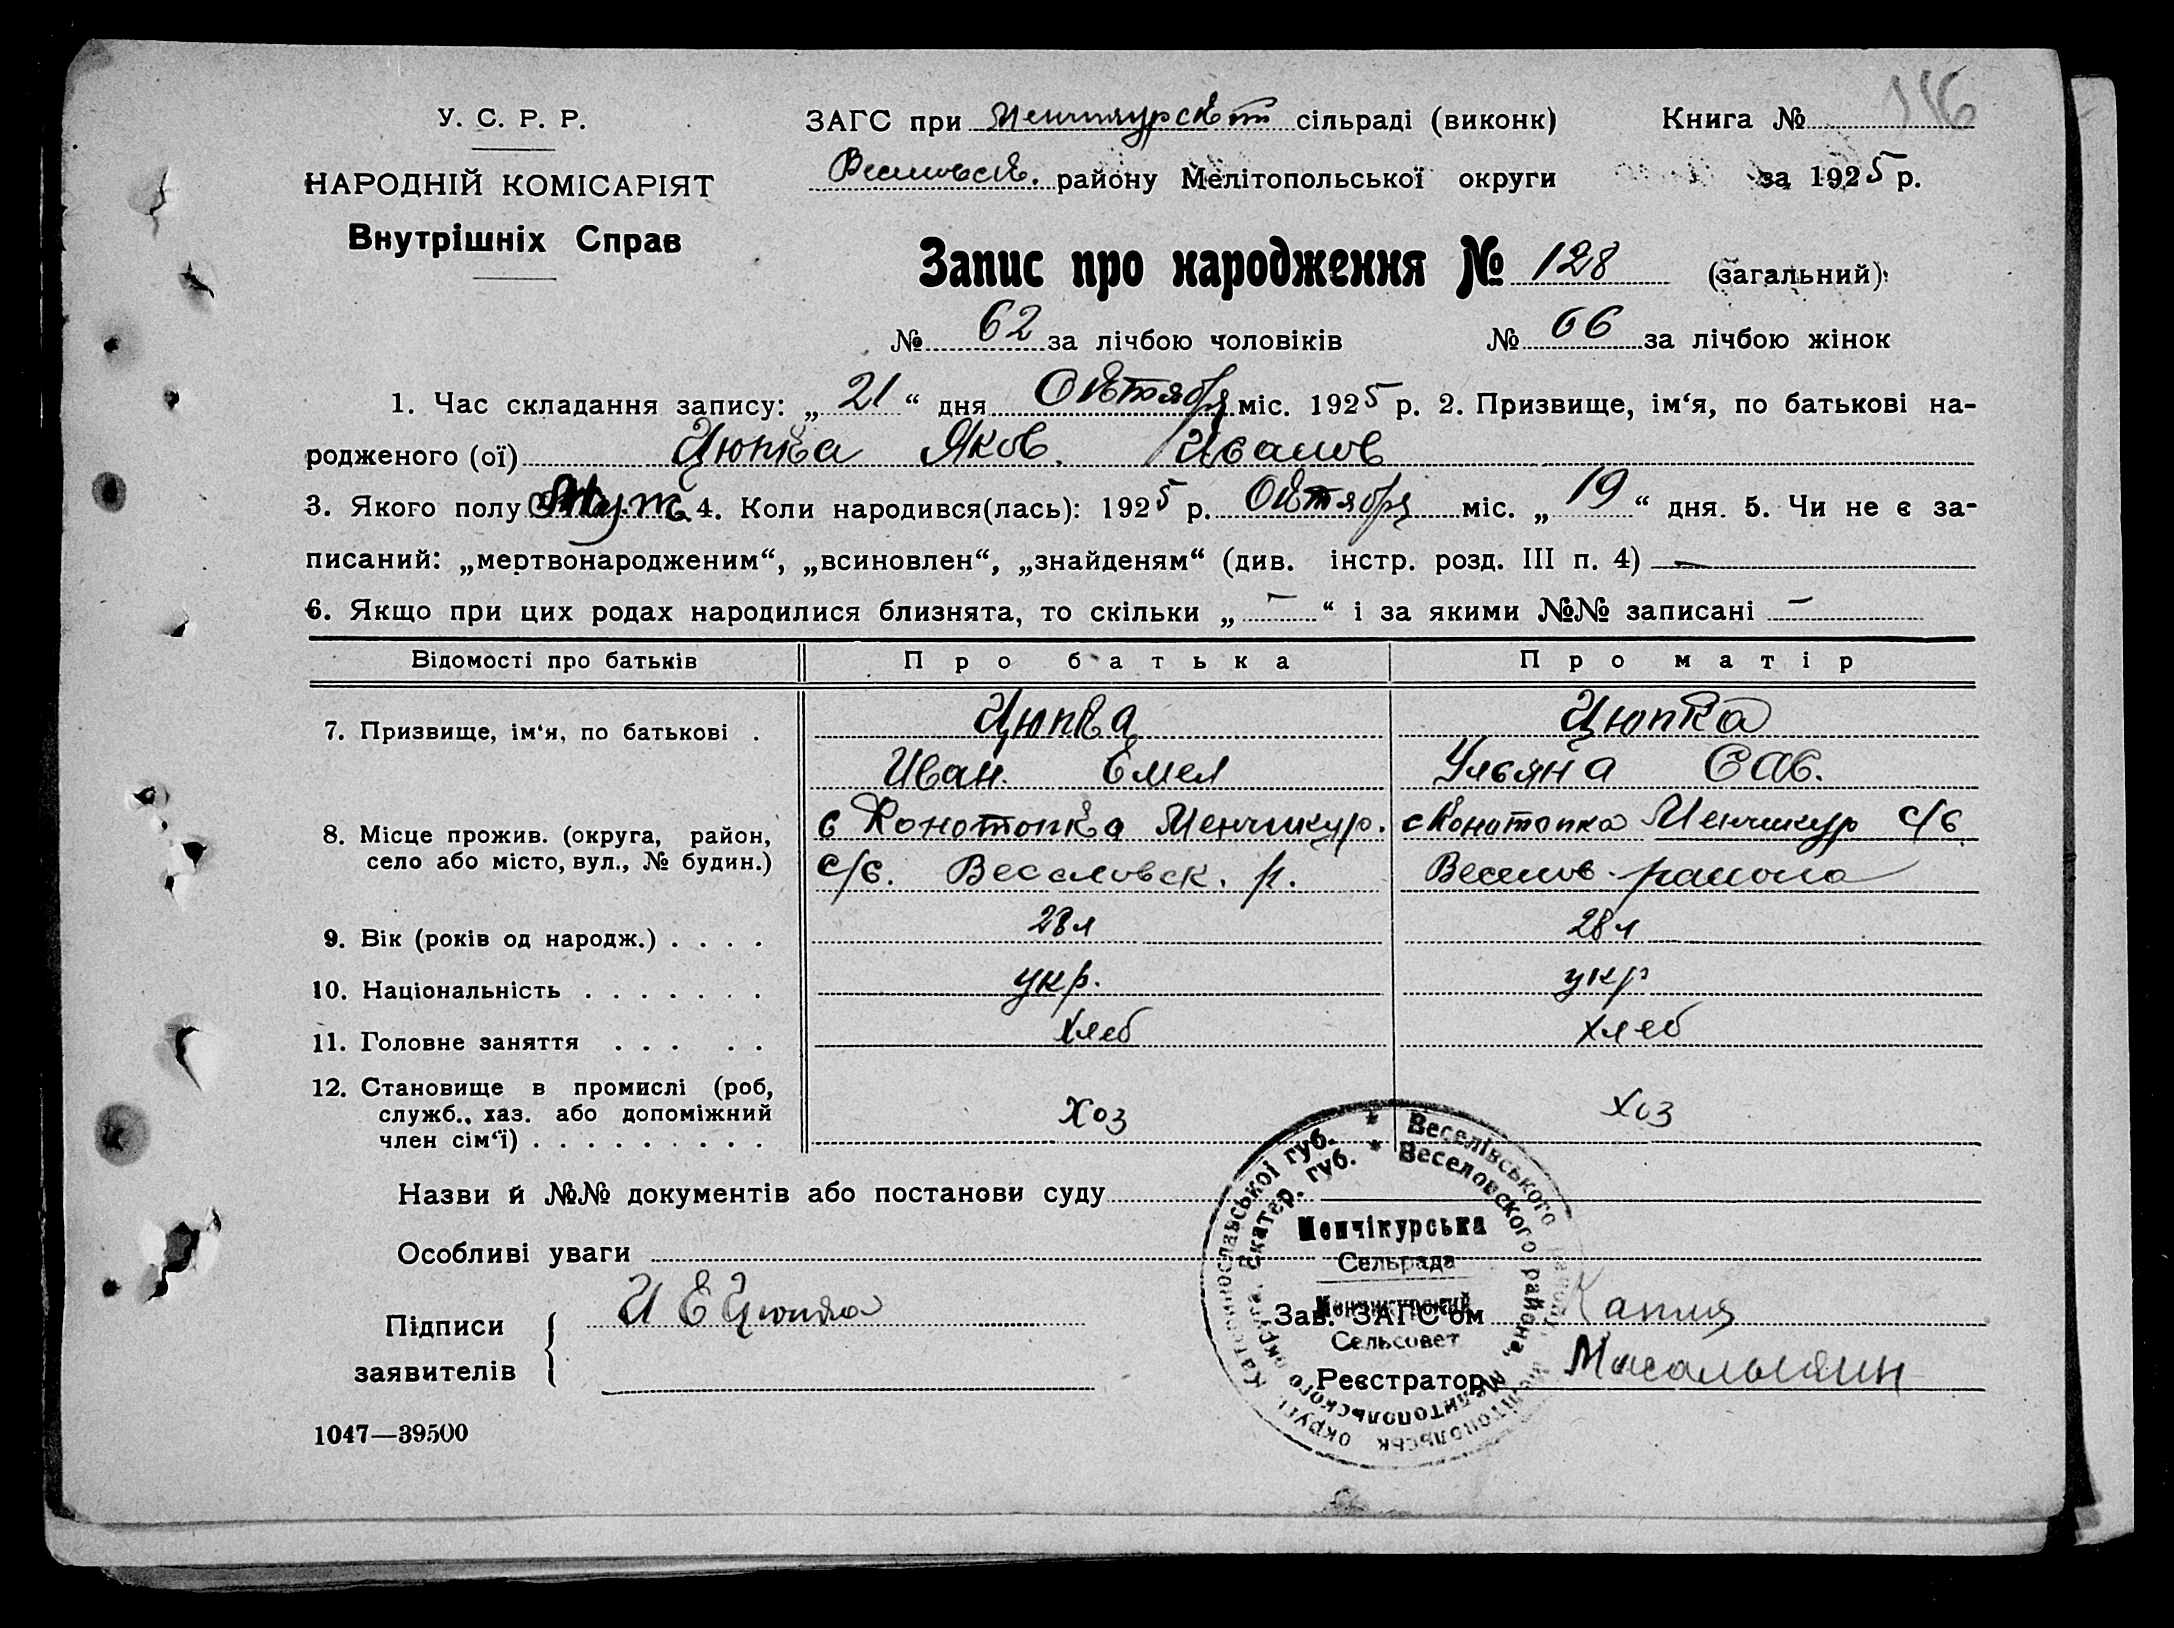 116
У. С. Р. Р.
НАРОДНІЙ КОМІСАРІЯТ
Внутрішніх Справ
ЗАГС при Менчикурском сільраді (виконк) Книга №
Веселовск. району Мелітопольської округи за 1925 р.
Запис про народження № 128 (загальний)
№ 62 за лічбою чоловіків № 66 за лічбою жінок
1. Час складання запису: „ 21 “ дня Октября міс. 1925 р. 2. Призвище, ім‘я, по батькові на-
родженого (ої) Цюпка Яков. Иванов
3. Якого полу Муж. 4. Коли народився(лась): 1925 р. Октября міс. „ 19 “ дня. 5. Чи не є за-
писаний: „мертвонародженим“, „всиновлен“, „знайденям“ (див. інстр. розд. III п. 4) —
6. Якщо при цих родах народилися близнята, то скільки „ — “ і за якими №№ записані —
Відомості про батьків Про батька Про матір
7. Призвище, ім‘я, по батькові . Цюпка Цюпка
Иван. Емел Ульяна Сав.
8. Місце прожив. (округа, район, село або місто, вул., № будин.) с Конотопка Менчикур. с Конотопка Менчикур с/с
с/с. Веселовск. р. Веселов. района
9. Вік (років од народж.) . . . . 28 л 28 л
10. Національність . . . . . . . укр. укр
11. Головне заняття . . . . . хлеб хлеб
12. Становище в промислі (роб, служб., хаз. або допоміжний член сім‘ї) . . . . . . . . . хоз хоз
Назви й №№ документів або постанови суду
Особливі уваги
Підписи заявителів И Е Цюпка
Зав. ЗАГС‘ом Капля
Реєстратор
Катеринославської губ. * Веселівського району, Мелітопольськ округи
Екатер. губ. * Веселовского района, Мелитопольского округа
Менчікурська
Сельрада
Менчикурский
Сельсовет
1047—39500